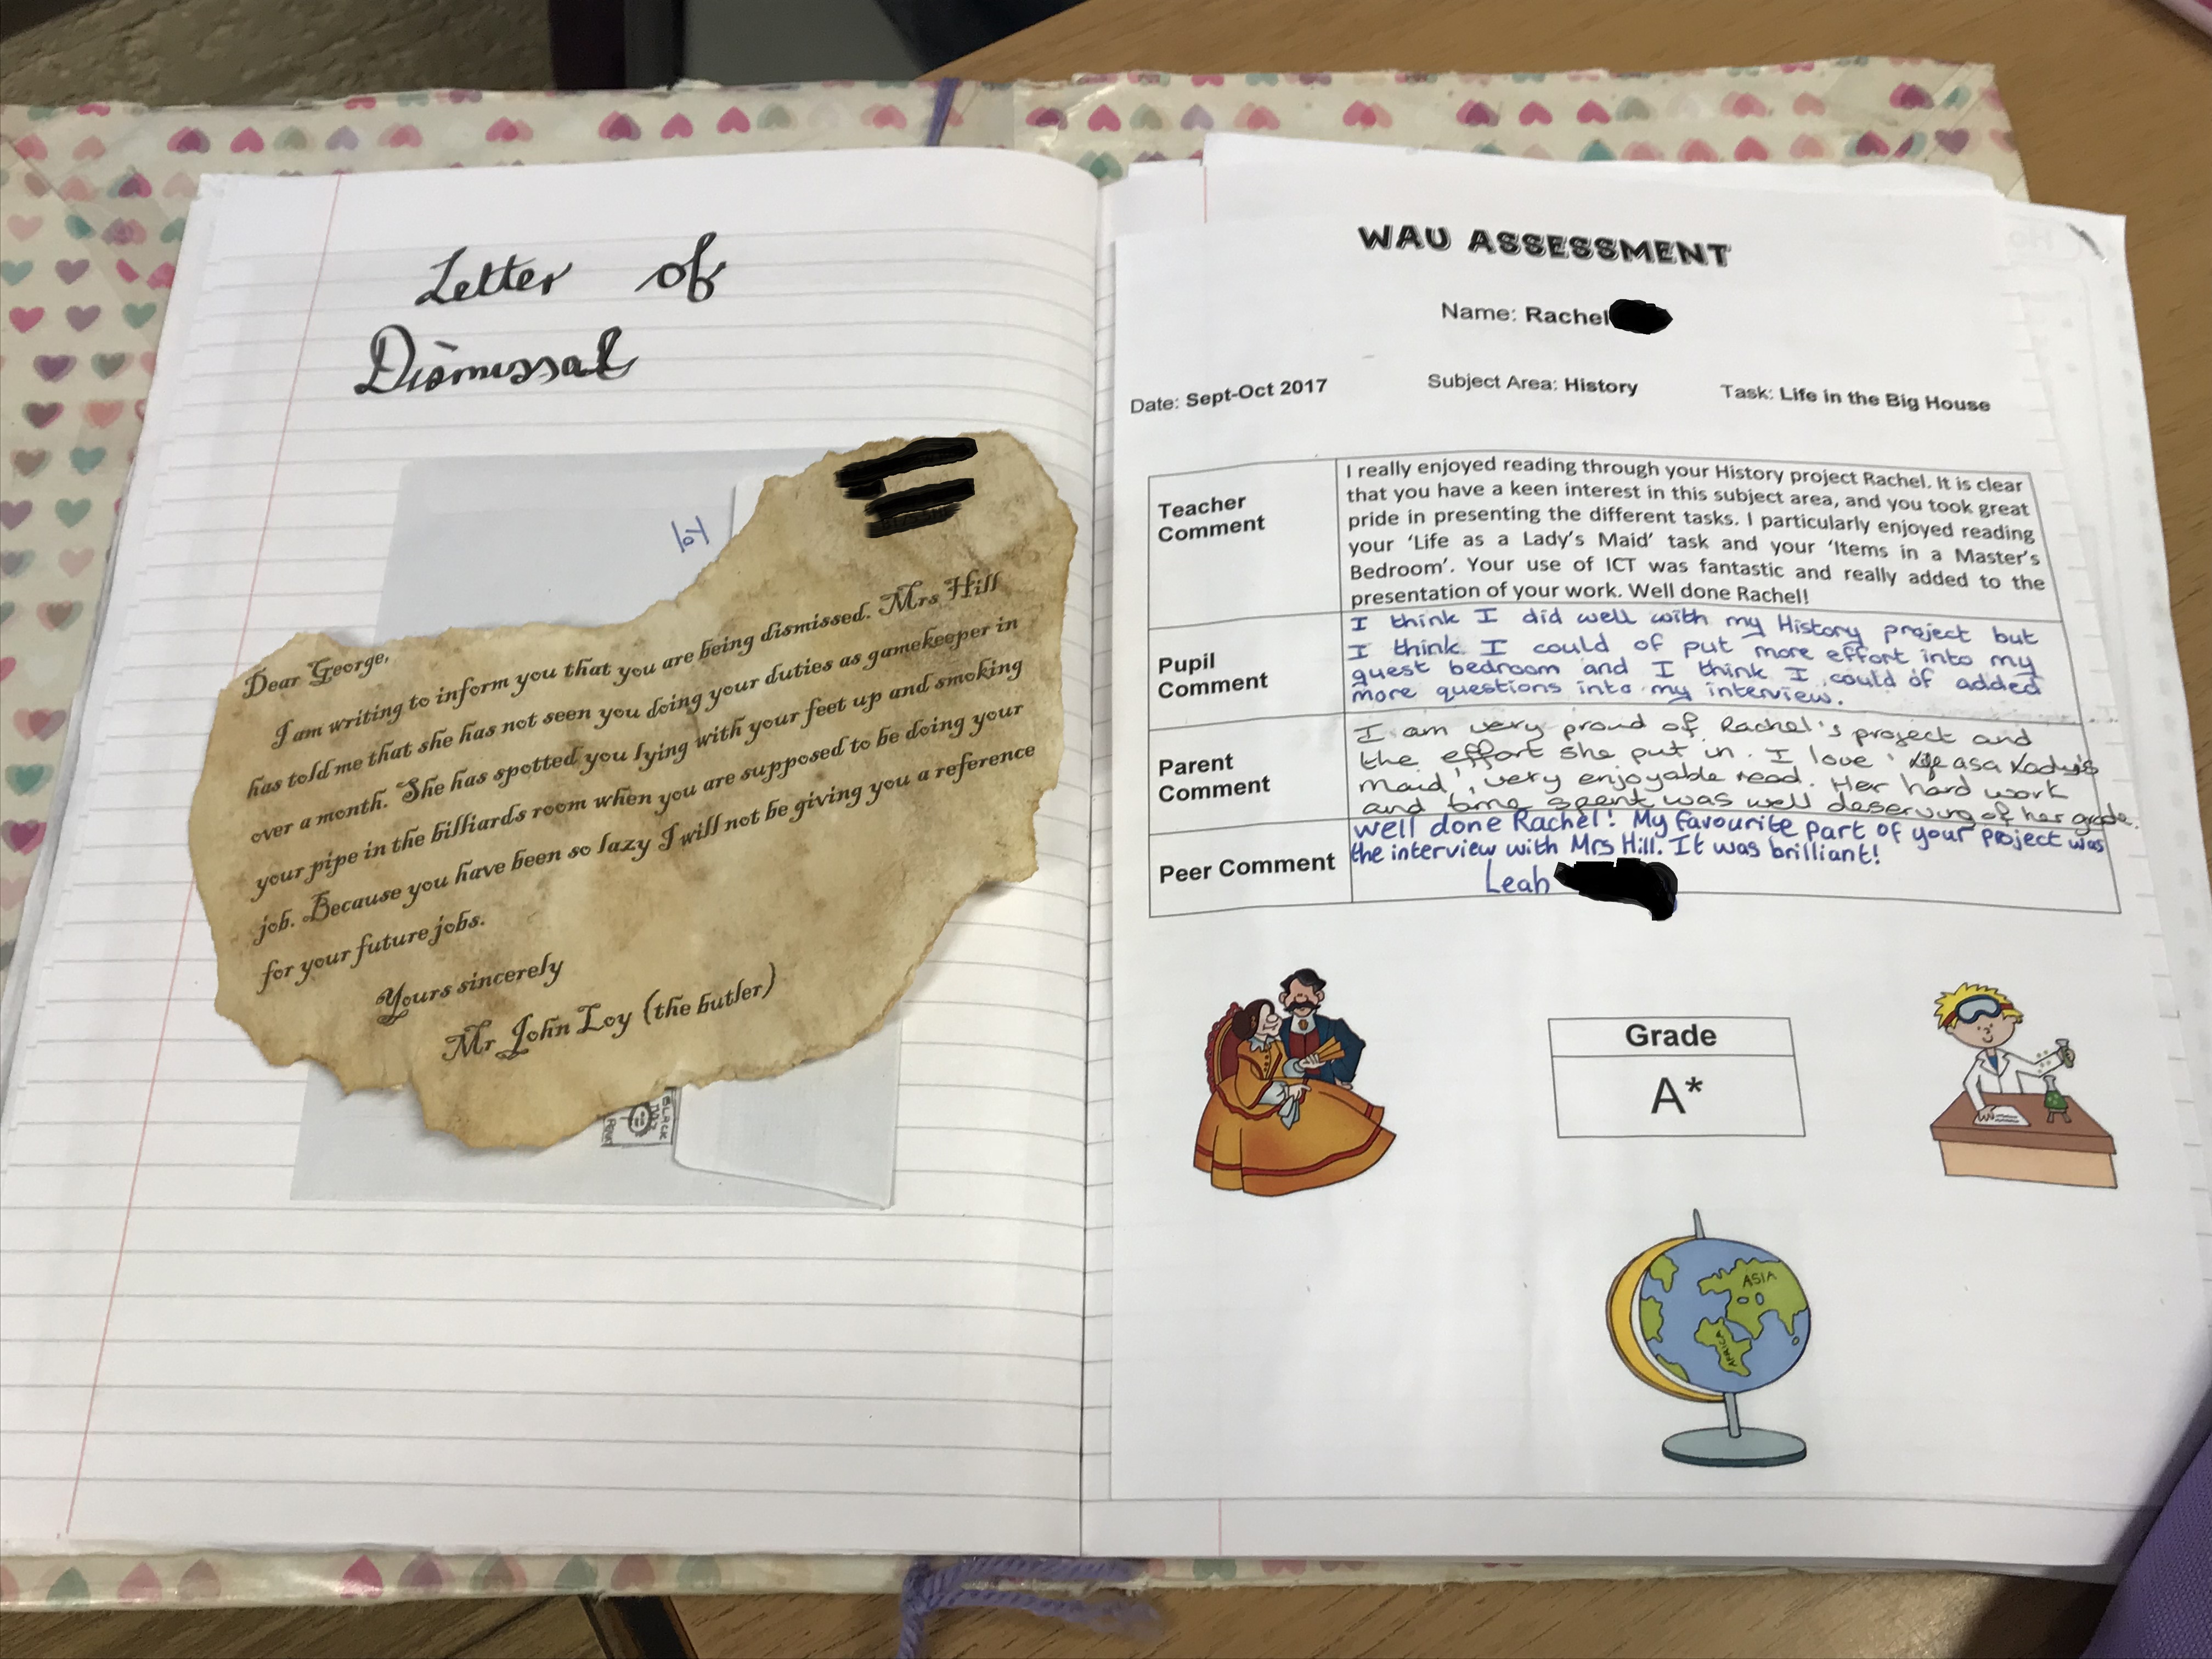 Letter of
Dismissal
Dear George,
I am writing to inform you that you are being dismissed. Mrs Hill
has told me that she has not seen you doing your duties as gamekeeper in
over a month. She has spotted you lying with your feet up and smoking
your pipe in the billiards room when you are supposed to be doing your
job. Because you have been so lazy I will not be giving you a reference
for your future jobs.
Yours sincerely
Mr John Loy (the butler)
BLACK
PENNY
WAU ASSESSMENT
Name: Rachel
Date: Sept-Oct 2017
Subject Area: History
Task: Life in the Big House
Teacher
Comment
I really enjoyed reading through your History project Rachel. It is clear
that you have a keen interest in this subject area, and you took great
pride in presenting the different tasks. I particularly enjoyed reading
your 'Life as a Lady's Maid' task and your 'Items in a Master's
Bedroom'. Your use of ICT was fantastic and really added to the
presentation of your work. Well done Rachel!
Pupil
Comment
I think I did well with my History project but
I think I could of put more effort into my
guest bedroom and I think I could of added
more questions into my interview.
Parent
Comment
I am very proud of Rachel's project and
the effort she put in. I love 'Life as a Lady's
Maid', very enjoyable read. Her hard work
and time spent was well deserving of her grade.
Peer Comment
Well done Rachel! My favourite part of your project was
the interview with Mrs Hill. It was brilliant!
Leah
Grade
A*
ASIA
AFRICA